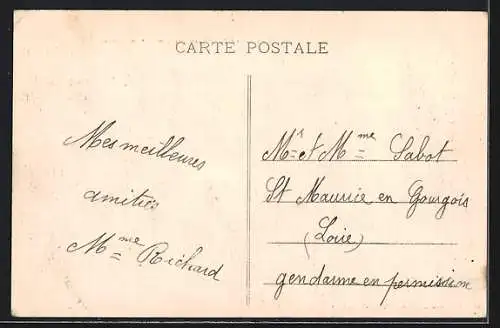 CARTE POSTALE
Mes meilleures
amitiés
Mme Richard
Mr et Mme Sabot
St Maurice en Gourgois
(Loire)
gendarme en permission